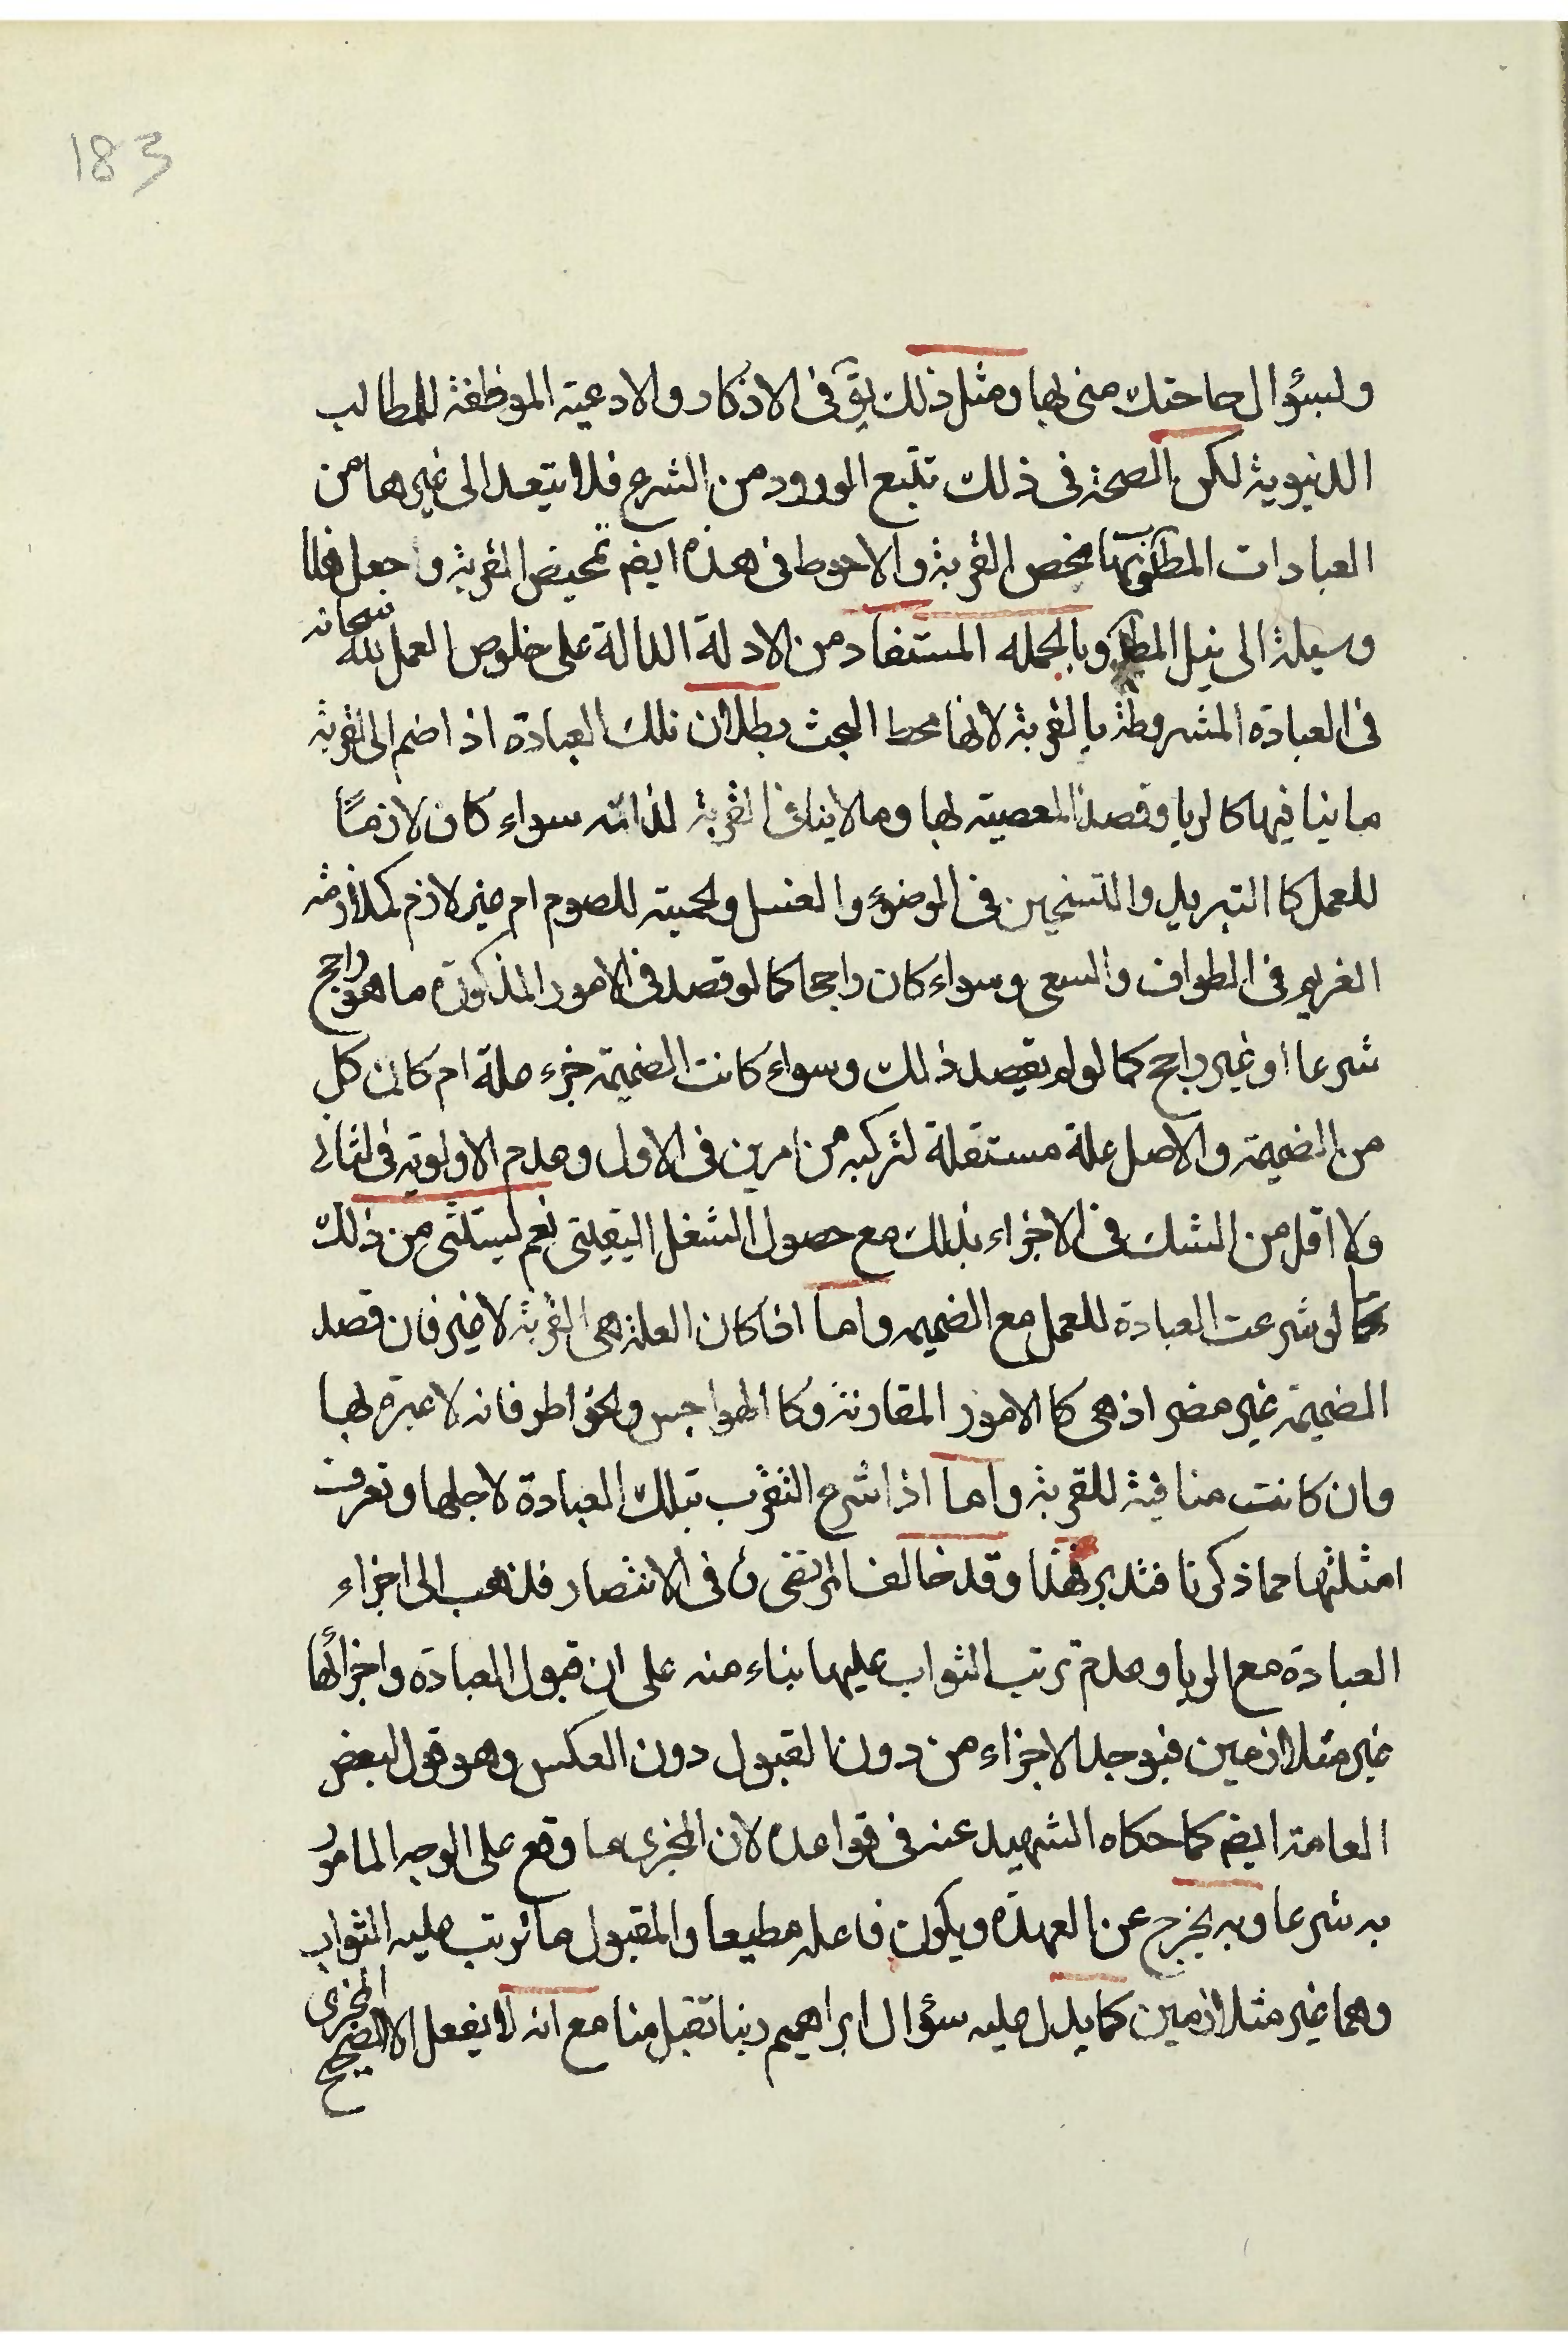 183
ولسؤال حاجتك منى لها ومثل ذلك يق فى الاذكار والادعية الموظفة للمطالب
الدنيوية لكن الصحة فى ذلك تتبع الورود من الشرع فلا يتعد الى غيرها من
العبادات المط محض القربة والاحوط فى هذه ايض تمحيض القربة واجعل هلا
وسيلة الى نيل المط وبالجمله المستفاد من الادلة الدالة على خلوص العمل لله سبحانه
فى العبادة المشروطة بالقربة لانها محط البحث بطلان تلك العبادة اذا ضم الى القربة
ما ينافيها كالريا وقصد المعصية لها وما لا ينافى القربة لذاته سواء كان لازمًا
للعمل كا التبريد والتسخين فى الوضوء والغسل والحمية للصوم ام غير لازم كملازمة
الغريم فى الطواف والسعى وسواء كان راجحا كما لو قصد فى الامور المذكورة ما هو راجح
شرعا او غير راجح كما لو لم يقصد ذلك وسواء كانت الضميمة جزء علة ام كانت كل
من الضميمة والاصل علة مستقلة لتركبه من امرين فى الاول وعدم الاولوية فى الثانى
ولا اقل من الشك فى الاجزاء بذلك مع حصول الشغل اليقينى نعم يستثنى من ذلك
كما لو شرعت العبادة للعمل مع الضميمه واما اذا كان العلة هى القربة لا غير فان قصد
الضميمة غير مضر اذ هى كا الامور المقارنة وكا الهواجس والخواطر فانه لا عبرة لها
وان كانت منافية للقربة واما اذا شرع التقرب بتلك العبادة لاجلها وتعرف
امثلتها مما ذكرنا فتدبر هذا وقد خالف المرتضى ره فى الانتصار فذهب الى اجزاء
العبادة مع الريا وعدم ترتب الثواب عليها بناء منه على ان قبول العبادة واجزائها
غير متلازمين فيوجد الاجزاء من دون القبول دون العكس وهو قول لبعض
العامة ايض كما حكاه الشهيد عنه فى قواعده لان المجزى ما وقع على الوجه المامور
به شرعا وبه يخرج عن العهدة ويكون فاعله مطيعا والمقبول ما ترتب عليه الثواب
وهما غير متلازمين كما يدل عليه سؤال ابراهيم ربنا تقبل منا مع انه لا يفعل الا الصحيح المجزى